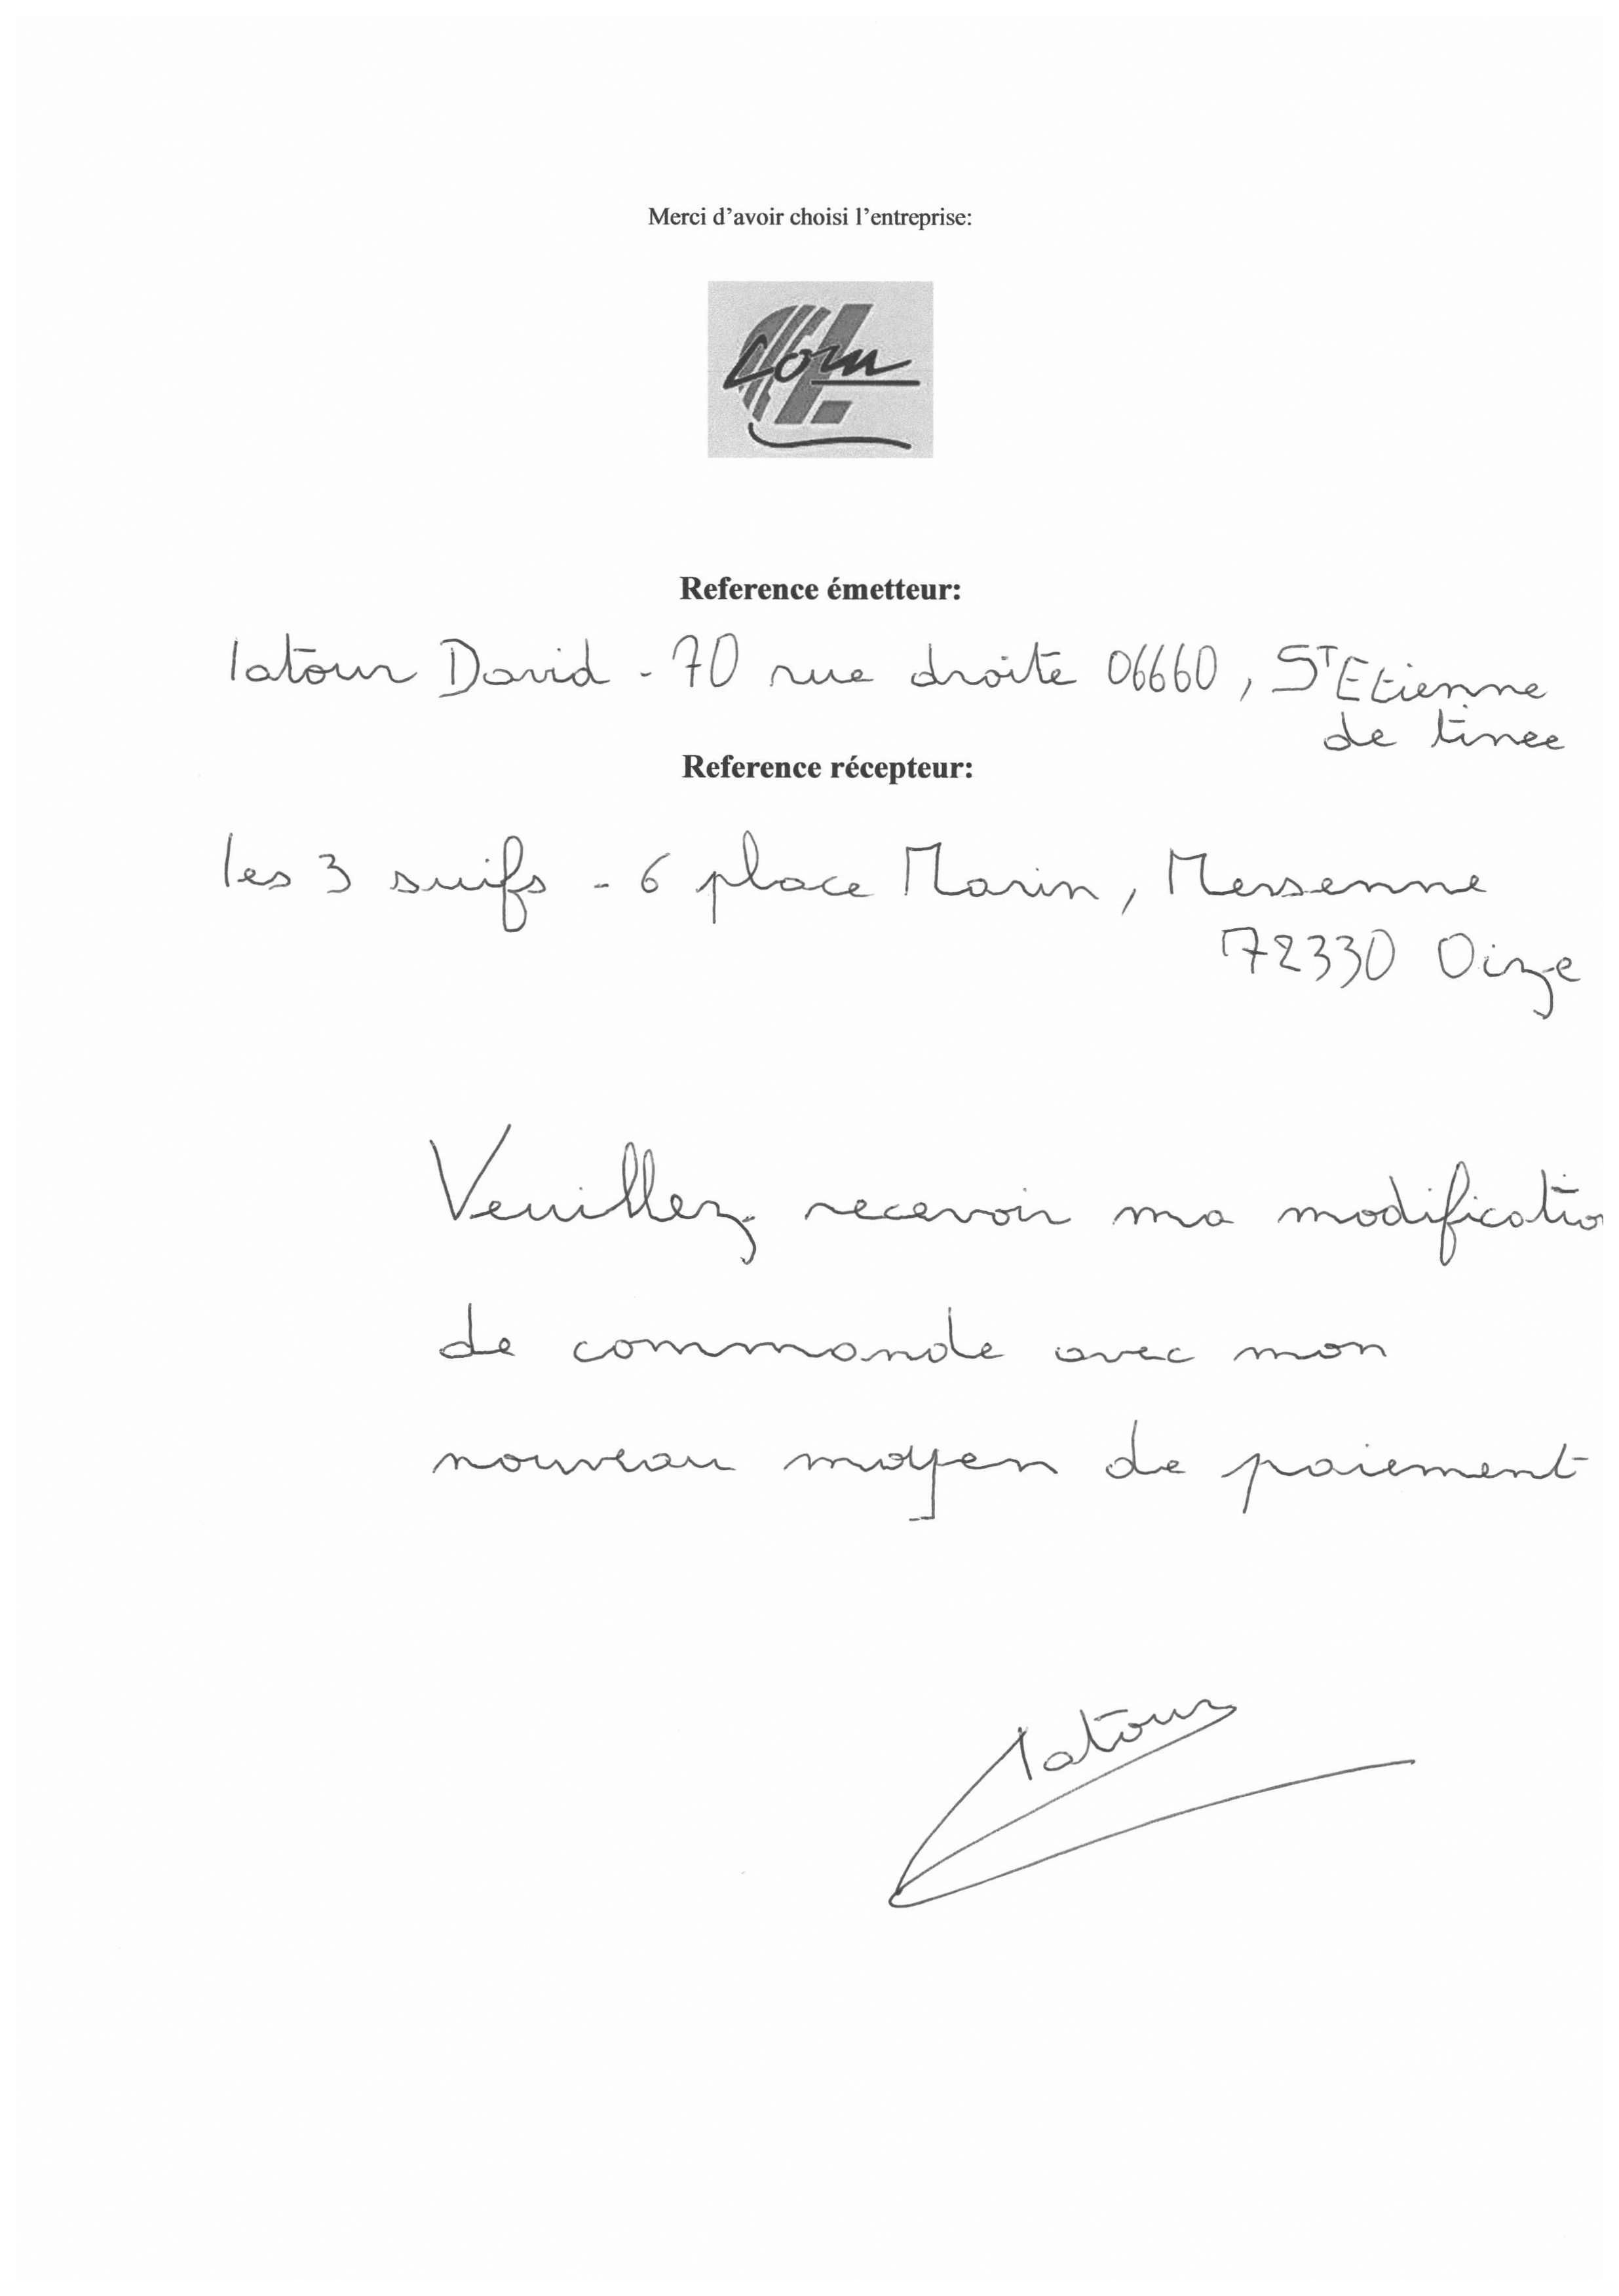 Merci d'avoir choisi l'entreprise:
Com
Reference émetteur:
latour David - 70 rue droite 06660, ST Etienne
de tinee
Reference récepteur:
les 3 suifs - 6 place Marin, Mersenne
72330 Oize
Veuillez recevoir ma modificatio
de commande avec mon
nouveau moyen de paiement
latour